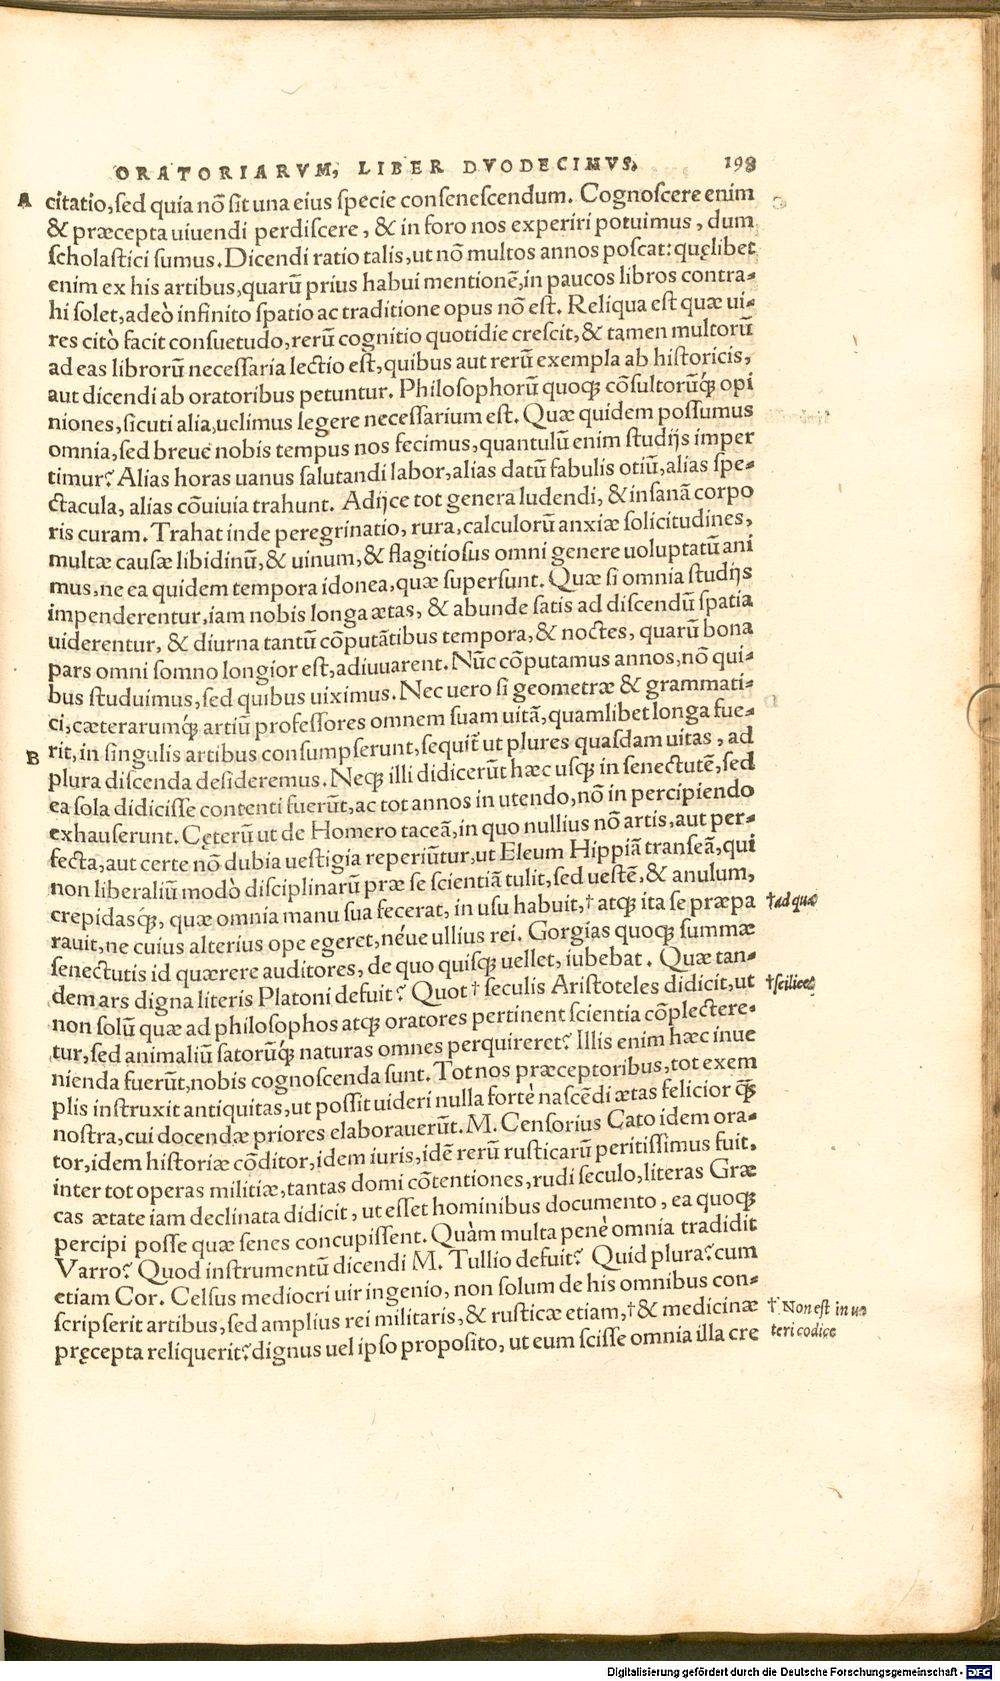 ORATORIARVM, LIBER DVODECIMVS. 198
A citatio,sed quia nõ sit una eius specie consenescendum. Cognoscere enim
& præcepta uiuendi perdiscere, & in foro nos experiri potuimus, dum
scholastici sumus. Dicendi ratio talis,ut nõ multos annos poscat: quęlibet
enim ex his artibus,quarũ prius habui mentionẽ,in paucos libros contra-
hi solet,adeò infinito spatio ac traditione opus nõ est. Reliqua est quæ ui-
res citò facit consuetudo,rerũ cognitio quotidie crescit,& tamen multorũ
ad eas librorũ necessaria lectio est,quibus aut rerũ exempla ab historicis,
aut dicendi ab oratoribus petuntur. Philosophorũ quoqꝫ cõsultorũqꝫ́ opi
niones,sicuti alia,uelimus legere necessarium est. Quæ quidem possumus
omnia,sed breue nobis tempus nos fecimus,quantulũ enim studijs imper
timur? Alias horas uanus salutandi labor,alias datũ fabulis otiũ,alias spe-
ctacula, alias cõuiuia trahunt. Adijce tot genera ludendi, & insanã corpo
ris curam. Trahat inde peregrinatio, rura,calculorũ anxiæ solicitudines,
multæ causæ libidinũ,& uinum,& flagitiosus omni genere uoluptatũ ani
mus,ne ea quidem tempora idonea,quæ supersunt. Quæ si omnia studijs
impenderentur,iam nobis longa ætas, & abunde satis ad discendũ spatia
uiderentur, & diurna tantũ cõputãtibus tempora,& noctes, quarũ bona
pars omni somno longior est,adiuuarent. Nũc cõputamus annos,nõ qui-
bus studuimus,sed quibus uiximus. Nec uero si geometræ & grammati-
ci,cæterarumqꝫ́ artiũ professores omnem suam uitã,quamlibet longa fue-
B rit,in singulis artibus consumpserunt,sequit̃ ut plures quasdam uitas, ad
plura discenda desideremus. Neqꝫ illi didicerũt hæc usqꝫ in senectutẽ,sed
ea sola didicisse contenti fuerũt,ac tot annos in utendo,nõ in percipiendo
exhauserunt. Cęterũ ut de Homero taceã,in quo nullius nõ artis,aut per-
fecta,aut certe nõ dubia uestigia reperiũtur,ut Eleum Hippiã transeã,qui
non liberaliũ modò disciplinarũ præ se scientiã tulit,sed uestẽ,& anulum,
crepidasqꝫ́, quæ omnia manu sua fecerat, in usu habuit,† atqꝫ ita se præpa †ad quæ
rauit,ne cuius alterius ope egeret,néue ullius rei. Gorgias quoqꝫ summæ
senectutis id quærere auditores, de quo quisqꝫ uellet, iubebat. Quæ tan-
dem ars digna literis Platoni defuit? Quot † seculis Aristoteles didicit,ut †scilicet
non solũ quæ ad philosophos atqꝫ oratores pertinent scientia cõplectere-
tur,sed animaliũ satorũqꝫ́ naturas omnes perquireret? Illis enim hæc inue
nienda fuerũt,nobis cognoscenda sunt. Tot nos præceptoribus,tot exem
plis instruxit antiquitas,ut possit uideri nulla fortè nascẽdi ætas felicior q̃ꝫ
nostra,cui docendæ priores elaborauerũt. M. Censorius Cato idem ora-
tor,idem historiæ cõditor,idem iuris,idẽ rerũ rusticarũ peritissimus fuit,
inter tot operas militiæ,tantas domi cõtentiones,rudi seculo,literas Græ
cas ætate iam declinata didicit, ut esset hominibus documento, ea quoqꝫ
percipi posse quæ senes concupissent. Quàm multa penè omnia tradidit
Varro? Quod instrumentũ dicendi M. Tullio defuit? Quid plura? cum
etiam Cor. Celsus mediocri uir ingenio, non solum de his omnibus con-
scripserit artibus,sed amplius rei militaris,& rusticæ etiam,† & medicinæ † Non est in ue
pręcepta reliquerit? dignus uel ipso proposito, ut eum scisse omnia illa cre teri codice
Digitalisierung gefördert durch die Deutsche Forschungsgemeinschaft - DFG